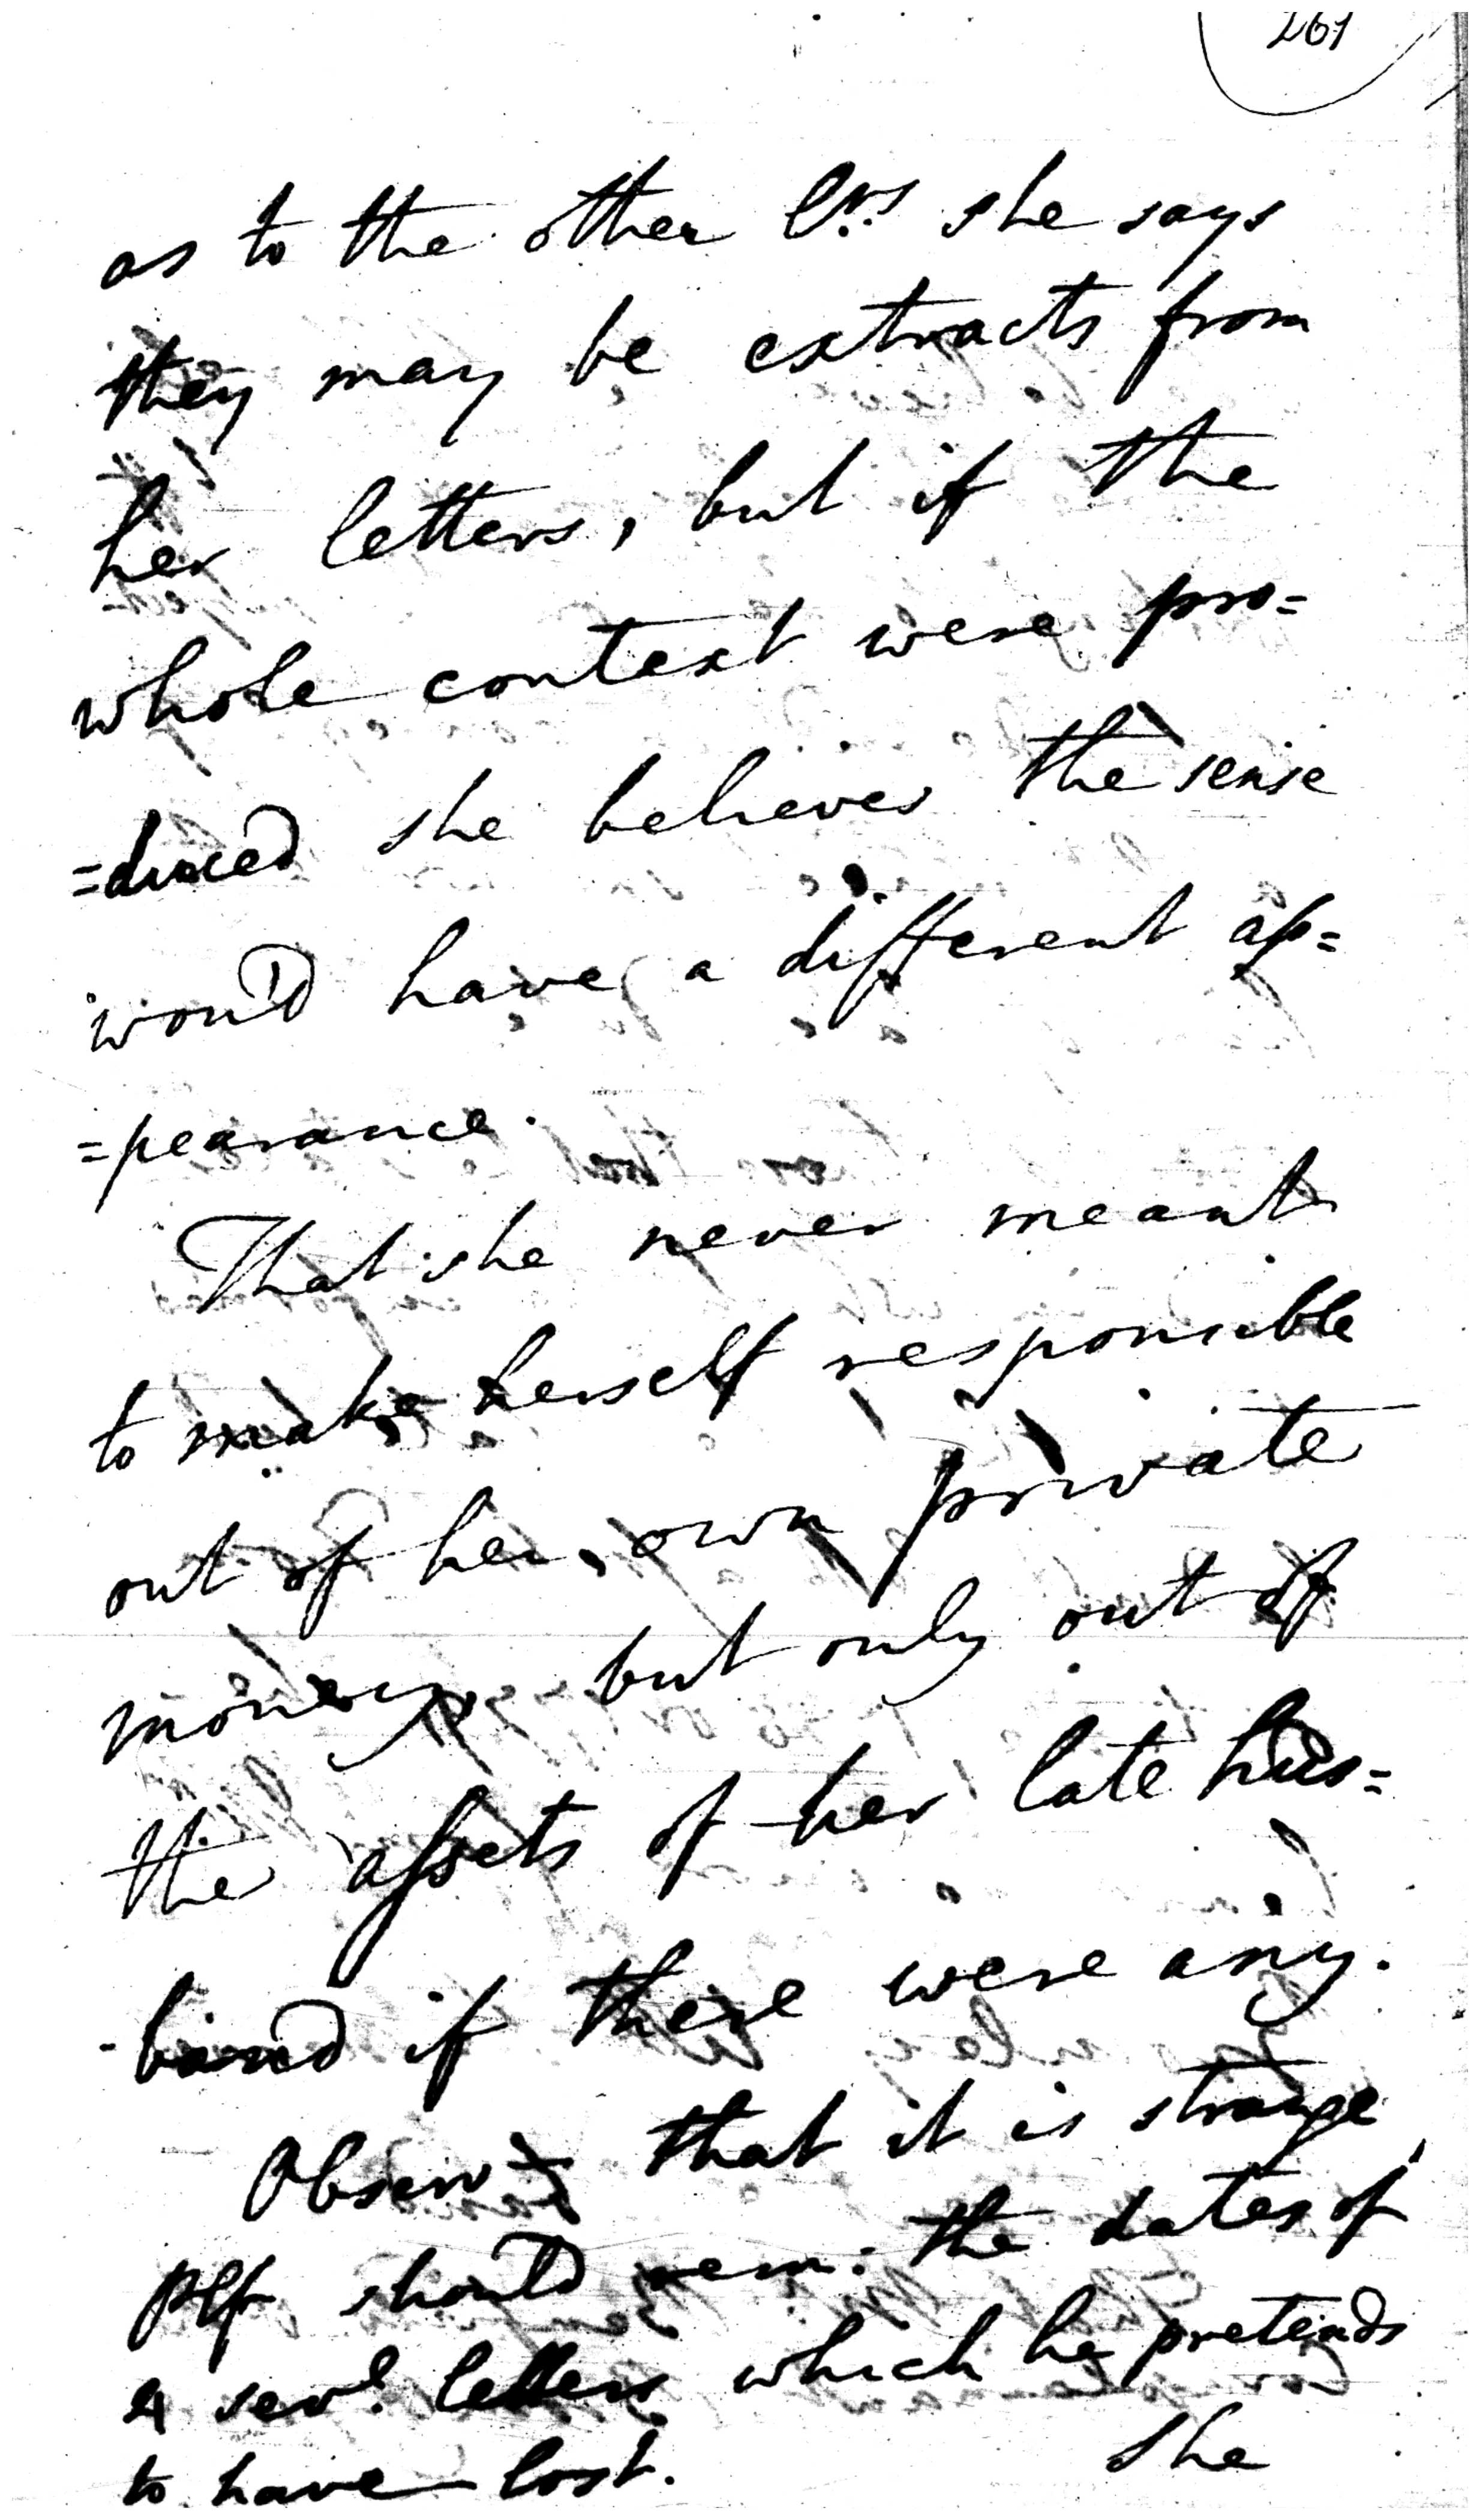 261
as to the other Lrs she says
they may be extracts from
her letters, but if the
whole context were pro=
=duced she believes the sense
wou'd have a different ap=
=pearance.
That she never meant
to make herself responsible
out of her own private
money, but only out of
the assets of her late hus=
-band if there were any.
that it is strange,
plf should rem: the dates of
4 sevl. letters which he pretends
to have lost.
she